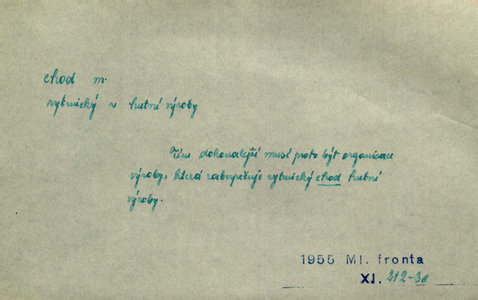 chod m.
rytmický ~ hutní výroby
Tím dokonalejší musí proto být organisace
výroby, která zabezpečuje rytmický chod hutní
výroby.
1955 Ml. fronta
XI. 212-3a